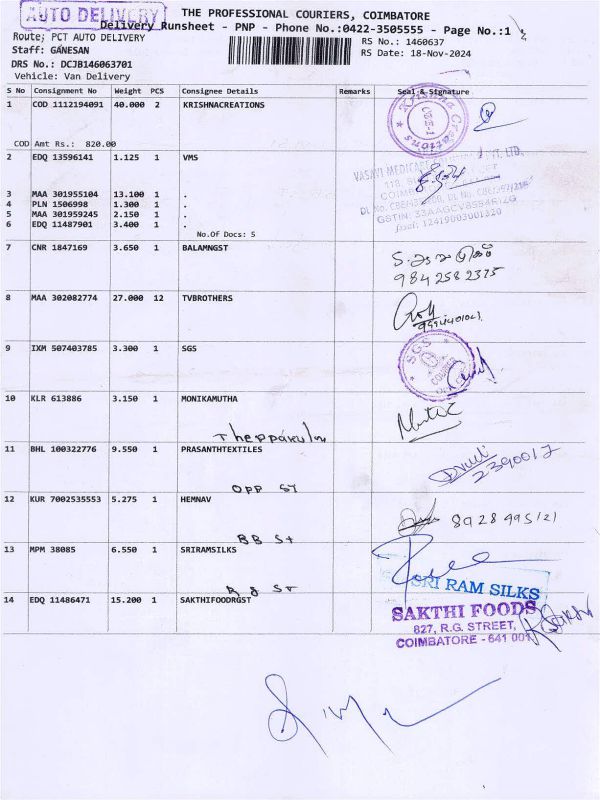 AUTO DELIVERY
THE PROFESSIONAL COURIERS, COIMBATORE
Delivery Runsheet - PNP - Phone No.:0422-3505555 - Page No.:1
Route; PCT AUTO DELIVERY
RS No.: 1460637
Staff: GANESAN
RS Date: 18-Nov-2024
DRS No.: DCJB146063701
Vehicle: Van Delivery
S No Consignment No Weight PCS Consignee Details Remarks Seal & Signature
1 COD 1112194091 40.000 2 KRISHNACREATIONS
Krishna Creations
CBE-1
COD Amt Rs.: 820.00
2 EDQ 13596141 1.125 1 VMS
3 MAA 301955104 13.100 1 .
4 PLN 1506998 1.300 1 .
5 MAA 301959245 2.150 1 .
6 EDQ 11487901 3.400 1 .
No.Of Docs: 5
7 CNR 1847169 3.650 1 BALAMNGST
9842582375
8 MAA 302082774 27.000 12 TVBROTHERS
9 IXM 507403785 3.300 1 SGS
SGS
COURIER
10 KLR 613886 3.150 1 MONIKAMUTHA
11 BHL 100322776 9.550 1 PRASANTHTEXTILES
2390017
OPP ST
12 KUR 7002535553 5.275 1 HEMNAV
BB St
13 MPM 38085 6.550 1 SRIRAMSILKS
SRI RAM SILKS
14 EDQ 11486471 15.200 1 SAKTHIFOODRGST
SAKTHI FOODS
827, R.G. STREET,
COIMBATORE - 641 001